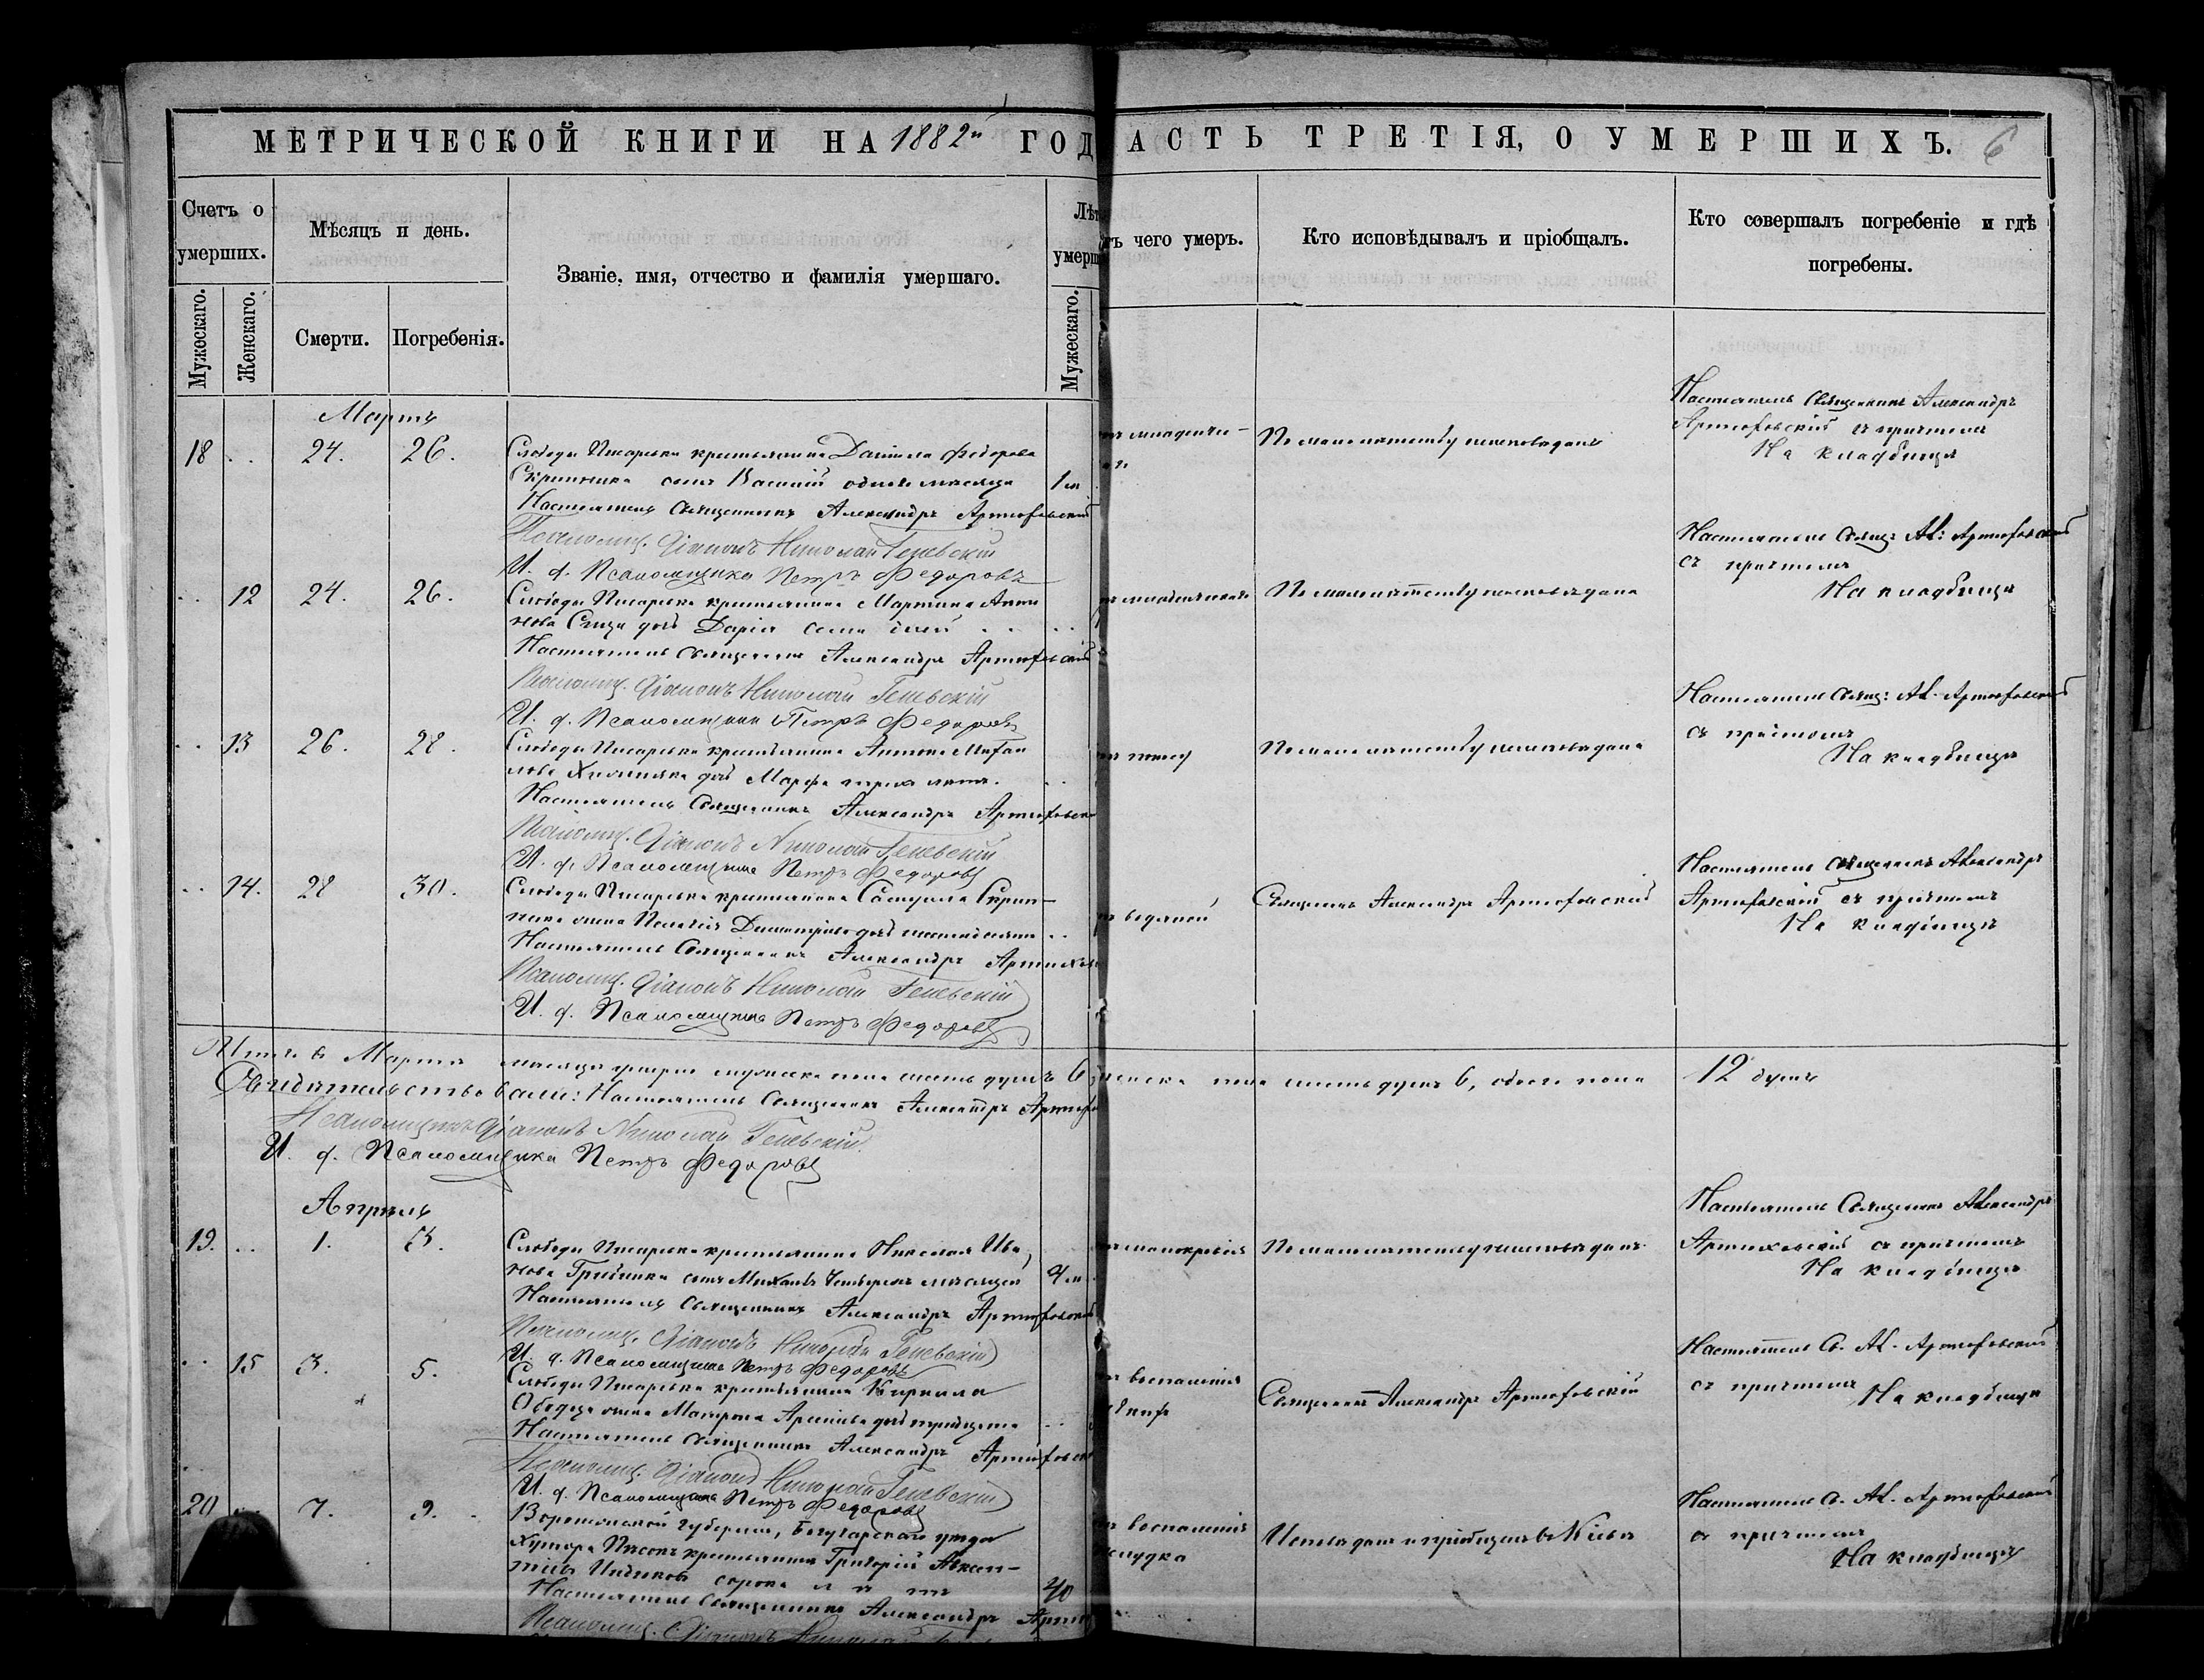 МЕТРИЧЕСКОЙ КНИГИ НА 1882й ГОД
АСТЬ ТРЕТІЯ, О УМЕРШИХЪ. 6
Счетъ о умерших.
Мѣсяцъ и день.
Званіе, имя, отчество и фамилія умершаго.
Лѣ
умерш
ъ чего умеръ.
Кто исповѣдывалъ и пріобщалъ.
Кто совершалъ погребеніе и гдѣ погребены.
Мужескаго.
Женскаго.
Смерти.
Погребенія.
Мужескаго.
Мартъ
18 .. 24. 26. Слободы Писаревки крестьянина Даніила Федорова
Скрипника сынъ Василій одного месяца 1 м
Настоятель Священникъ Александръ Артюховскій
Псаломщ. Діаконъ Николай
И. д. Псаломщика Петръ Федоровъ
По малолетству неисповеданъ
Настоятель Священникъ Александръ
Артюховскій съ причтомъ
На кладбище
.. 12 24. 26. Слободы Писаревки крестьянина Мартина Анто
нова дочь Дарія семи дней
Настоятель Священникъ Александръ Артюховскій
Псаломщ. Діаконъ Николай
И. д. Псаломщика Петръ Федоровъ
По малолетству неисповедана
Настоятель Свящ: Ал: Артюховскій
съ причтомъ
На кладбище
.. 13 26. 28. Слободы Писаревки крестьянина Антона Михаи
лова дочь Марфа трехъ летъ.
Настоятель Священникъ Александръ Артюховски
Псаломщ. Діаконъ Николай
И. д. Псаломщика Петръ Федоровъ
По малолетству неисповедана
Настоятель Свящ: Ал. Артюховскій
съ причтомъ
На кладбище
.. 14. 28 30. Слободы Писаревки крестьянина Самуила Скрип-
ника жена Пелагія Димитріева
Настоятель Священникъ Александръ Артюхов
Псаломщ. Діаконъ Николай
И. д. Псаломщика Петръ Федоровъ
водяной
Священникъ Александръ Артюховскій
Настоятель Священникъ Александръ
Артюховскій съ причтомъ
На кладбище
Итого в Марте месяце умерло мужеска пола шесть душъ 6
женска пола шесть душъ 6, обоего пола 12 душъ
Свидетельствовали: Настоятель Священникъ Александръ Артюхо
Псаломщикъ Діаконъ Николай
И. д. Псаломщика Петръ Федоровъ
Апрель
19. .. 1. 3. Слободы Писаревки крестьянина Николая Ива
нова сынъ Михаилъ четырехъ месяцей 4 м
Настоятель Священникъ Александръ Артюховскій
Псаломщ. Діаконъ Николай
И. д. Псаломщика Петръ Федоровъ
малокровія
По малолетству неисповеданъ
Настоятель Священникъ Александръ
Артюховскій съ причтомъ
На кладбище
.. 15 3. 5. Слободы Писаревки крестьянина Кирилла
жена Матрона
Настоятель Священникъ Александръ Артюховск
Псаломщ. Діаконъ Николай
И. д. Псаломщика Петръ Федоровъ
воспаленія
Священникъ Александръ Артюховскій
Настоятель С. Ал. Артюховскій
съ причтомъ На кладбище
20 .. 7. 9. Воронежской губерніи, Богучарскаго уезда
Хутора крестьянинъ Григорій Авксен-
тіевъ сорока летъ 40
Настоятель Священникъ Александръ Артю
Псаломщ. Діаконъ Николай
воспаленія
желудка
Исповеданъ и пріобщенъ в Кіеве
Настоятель С. Ал. Артюховскій
съ причтомъ
На кладбище